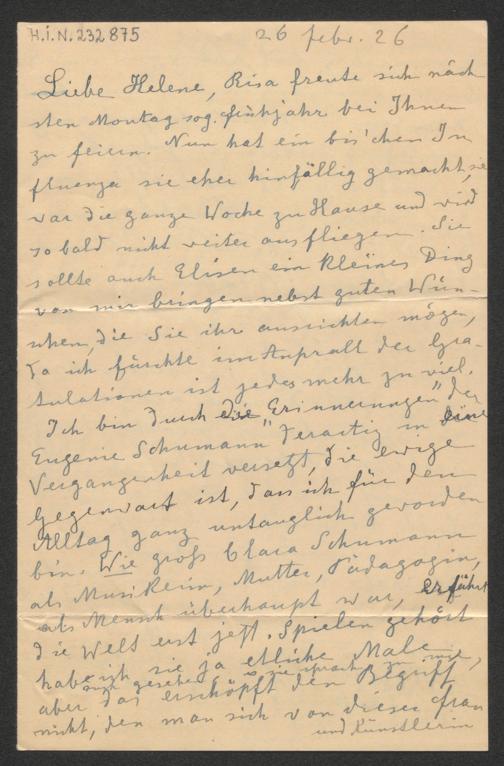 H.I.N. 232875
26 febr. 26
Liebe Helene, Risa freute sich näch-
sten Montag sog. frühjahr bei Ihnen
zu feiern. Nun hat ein bis'chen In
fluenza sie eher hinfällig gemacht, sie
war die ganze Woche zu Hause und wird
so bald nicht weiter ausfliegen. Sie
sollte auch Elisen ein kleines Ding
von mir bringen nebst guten Wün-
schen, die Sie ihr ausrichten mögen,
da ich fürchte im Anprall der Gra-
tulationen ist jedes mehr zu viel.
Ich bin durch die "Erinnerungen" der
Eugenie Schumann" derartig in eine
Vergangenheit versetzt, die ewige
Gegenwart ist, dass ich für den
Alltag ganz untauglich geworden
bin. Wie groß Clara Schumann
als Musikerin, Mutter, Pädagogin,
als Mensch überhaupt war, erfährt
die Welt erst jetzt. Spielen gehört
habe ich sie ja etliche Male
auch gesehen sie sprach zu mir,
aber das erschöpft den Begriff
nicht, den man sich von dieser Frau
und Künstlerin